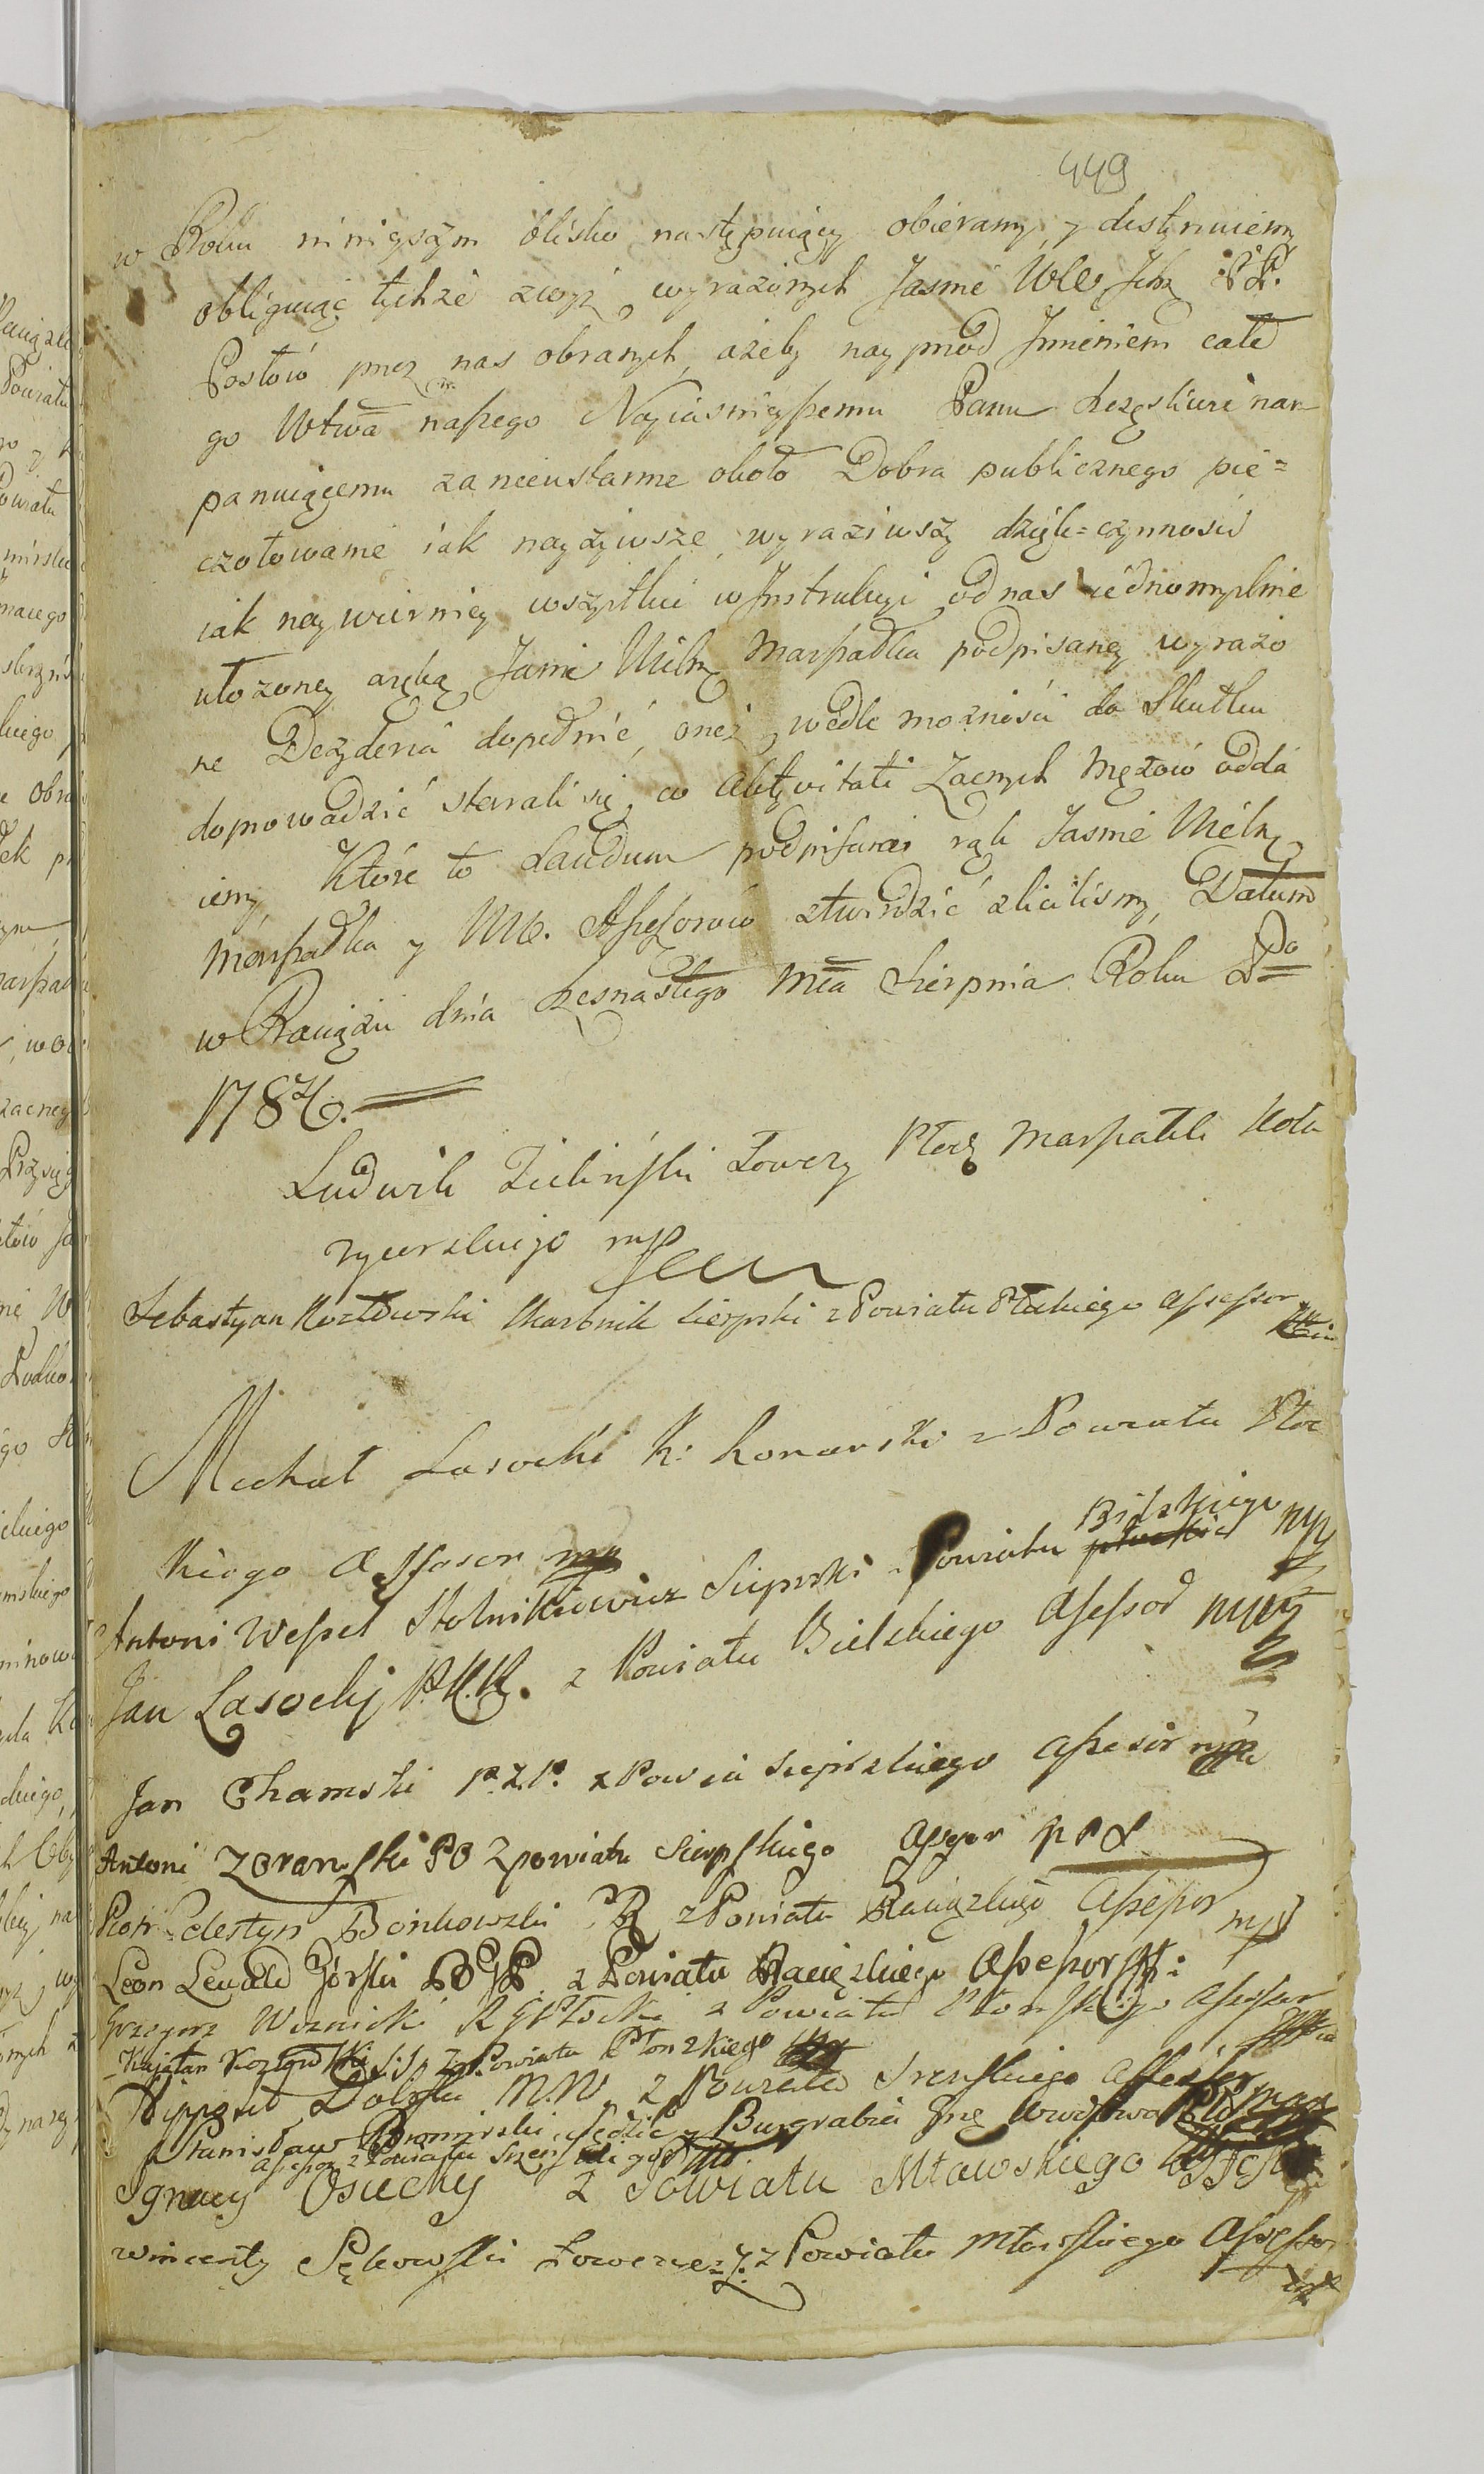 449
w Roku ninieyszym blisko następuiący obieramy, y destynuiemy
obliguiąc tychże zwyż wyrażonych Jasnie WW Ichm PP.
Posłów przez nas obranych, ażeby nayprzod Imieniem całe
go Wtwa naszego Nayiasnieyszemu Panu Szczęsliwie nam
panuiącemu za nieustanne około Dobra publicznego pie=
czołowanie iak nayżywsze wyraziwszy dzięk=czynności
iak naywierniey wszystkie w Instrukcyi od nas iednomyslnie
ułożoney a ręką Jasnie Marszałka podpisaney wyrażo
ne Dezyderia dopełnić, oneż wedle możności do Skutku
doprowadzić starali się, co Aktywitati Zacnych Mężow odda
iemy, Które to Laudum podpisami rąk Jasnie
Marszałka y WW. Assessorow ztwierdzić zleciliśmy, Datum
w Raciążu dnia Szesnastego Mca Sierpnia Roku Po
1786.
Ludwik Zieliński Łowczy Płocki Marszałek Koła
rycerskiego mp
Sebastyan Kozłowski Skarbnik Sierpski z Powiatu Płockiego assessor
Michał Lasocki K: Konarski z Powiatu Płoc
kiego Assesor mp
Antoni Wessel Stolnikiewicz Sierpski z Powiatu płockie Bielskiego mp
Jan Lasockij P.K.R. z Powiatu Bielskiego Assessor mp
Jan Chamski P.Z.P. z Powia Sierpskiego assesor mp
Antoni Zoranski PO z powiatu Sierpskiego
Piotr Celestyn Bońkowski z Powiatu Raciązkiego Assessor mp
Leon Lewald Górski z Powiatu Raciązkiego Assessor
Grzegorz Woznicki z Powiatu Płonskiego Assessor
Kajetan Kozłowski S:S. z Powiatu Płonskiego
Hippolit Dolski z Powiatu Srenskiego Assessor
Stanisław Sędzic y Burgrabia
Assessor z Powiatu Szrenskiego
Ignacy Osiecky z Powiatu Mławskiego
Wincenty Sękowski Łowczyc z Powiatu Mławskiego Assessor